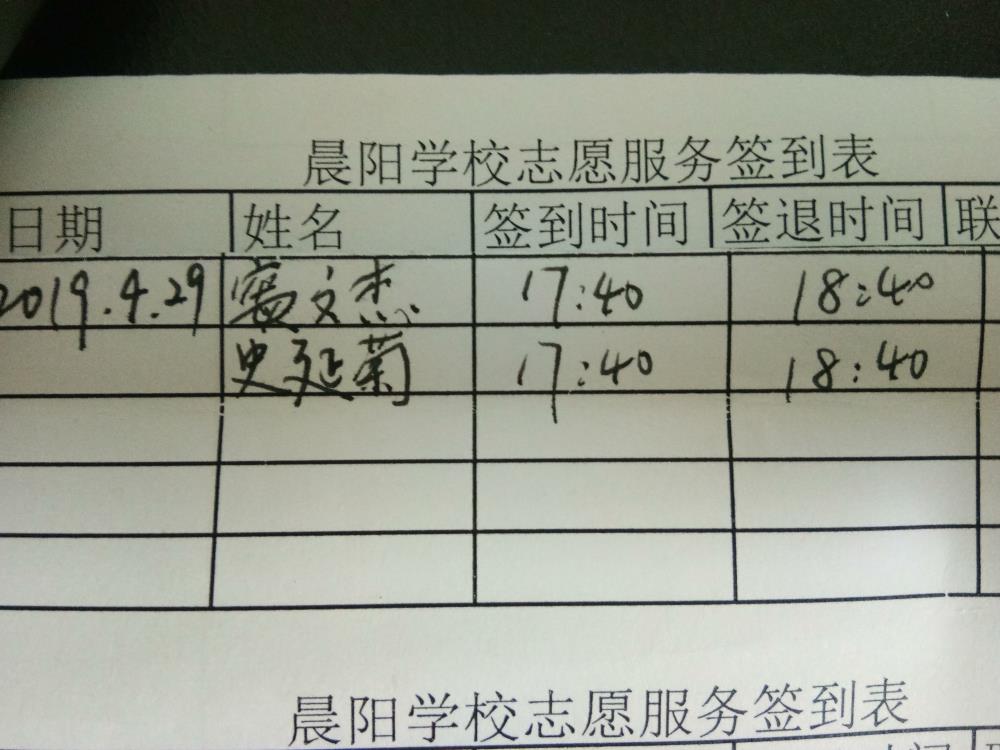 晨阳学校志愿服务签到表
日期 姓名 签到时间 签退时间 联
2019.4.29 文杰 17:40 18:40
史延菊 17:40 18:40
晨阳学校志愿服务签到表